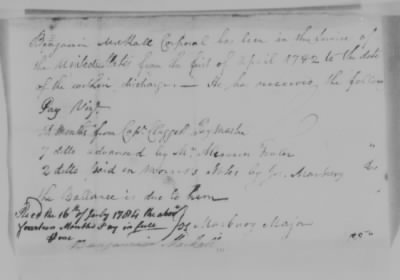 Benjamin Mackall Corporal has been in the service of
the United States from the first of April 1782 to the date
of the within discharge. — He has received the follow
Pay Viz.
months from Capt. Clagget Paymaster
7 ditto advanced by Mr.
2 ditto paid in Morris's Notes by Js. Marbury
the Ballance is due to him
Rec'd the 16th of July 1784 the above
fourteen Months Pay in full
Js. Marbury Major
Benjamin Mackall